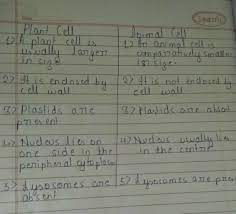 Plant Cell Animal Cell
1) A plant cell is 1) An animal cell is
usually larger comparatively smaller
in size. in size.
2) It is enclosed by 2) It is not enclosed by
cell wall cell wall
3) Plastids are 3) Plastids are absent
present
4) Nucleus lies on 4) Nucleus usually lies
one side in the in the centre
peripheral cytoplasm
5) Lysosomes are 5) Lysosomes are pres
absent